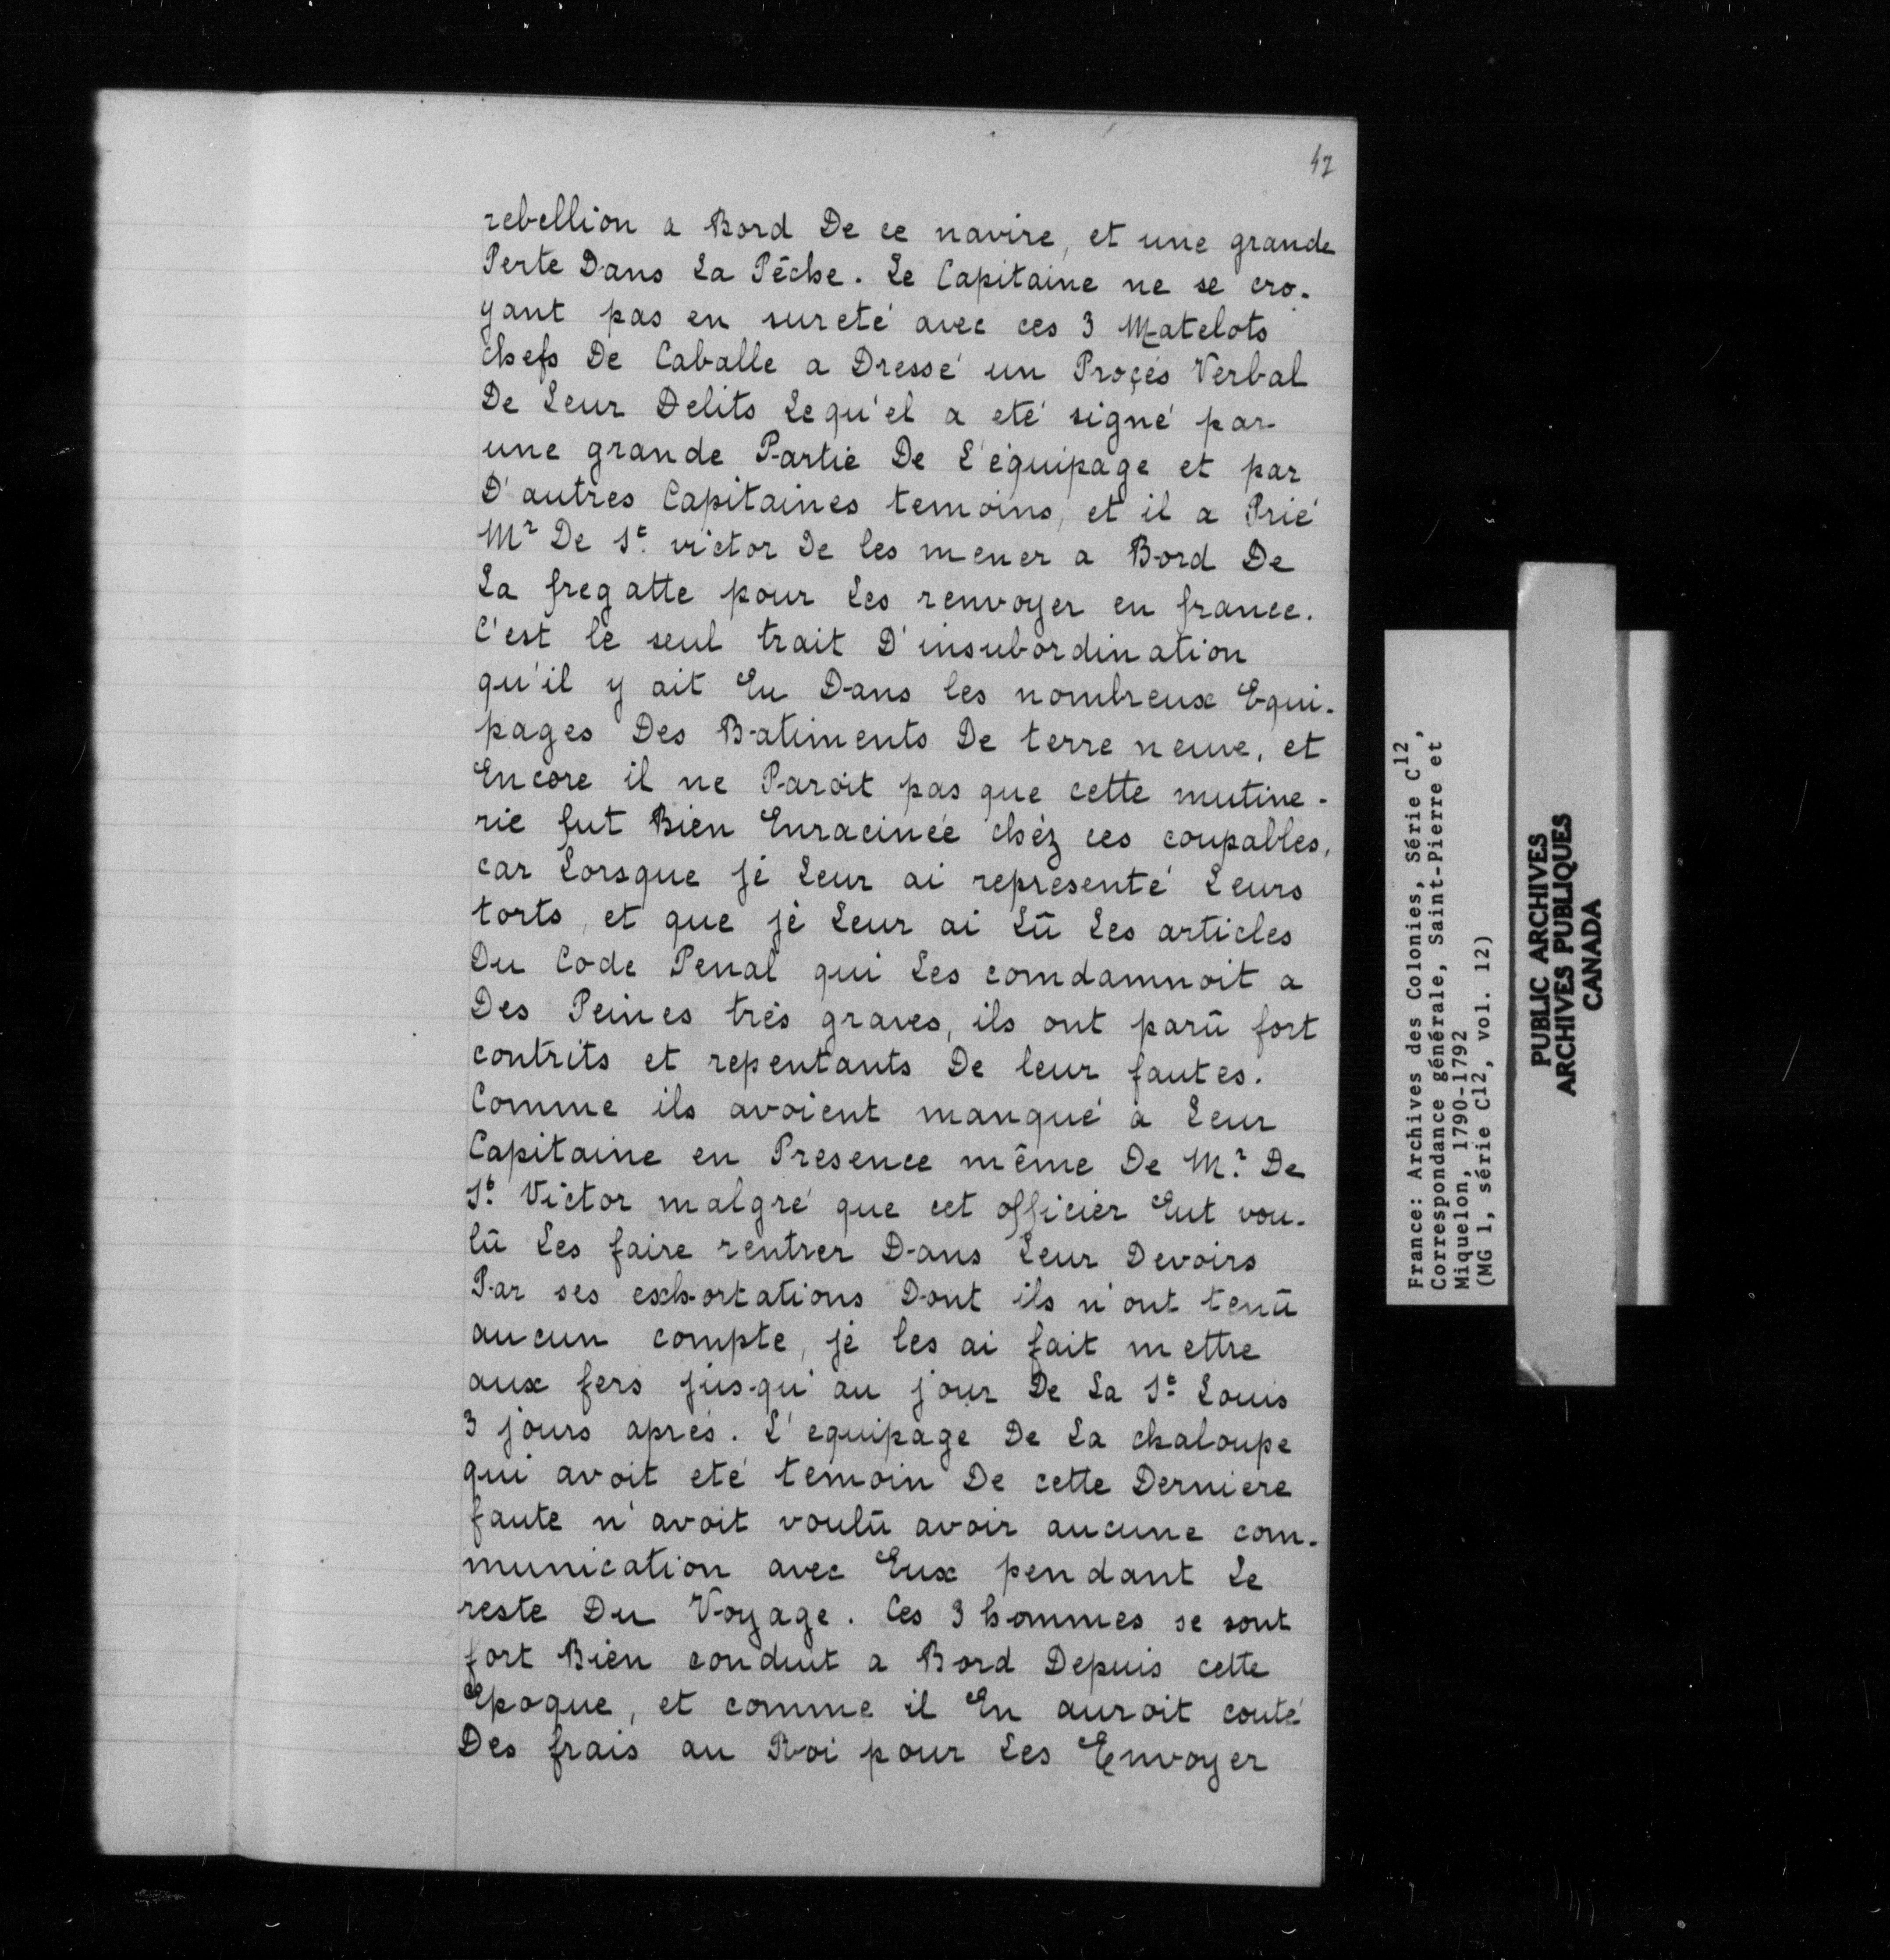 47
rebellion a Bord De ce navire, et une grande
Perte Dans La Pêche. Le Capitaine ne se cro-
yant pas en sureté avec ces 3 Matelots
chefs De Caballe a Dressé un Proçés Verbal
De Leur Delits Lequ'el a eté signé par
une grande Partie De L'équipage et par
D'autres Capitaines temoins, et il a Prié
Mr De St. victor De les mener a Bord De
La fregatte pour Les renvoyer en france.
C'est le seul trait D'insubordination
qu'il y ait Eu Dans les nombreux Equi-
pages Des Batiments De terre neuve, et
Encore il ne Paroit pas que cette mutine-
rie fut Bien Enracinée chéz ces coupables,
car Lorsque jé Leur ai representé Leurs
torts, et que jé Leur ai Lû Les articles
Du Code Penal qui Les comdamnoit a
Des Peines trés graves, ils ont parû fort
contrits et repentants De leur fautes.
Comme ils avoient manqué a Leur
Capitaine en Presence même De Mr. De
St. Victor malgré que cet officier Eut vou-
lû Les faire rentrer Dans Leur Devoirs
Par ses exhortations Dont ils n'ont tenû
aucun compte, jé les ai fait mettre
aux fers jus-qu'au jour De La St. Louis
3 jours aprés. L'equipage De La chaloupe
qui avoit eté temoin De cette Derniere
faute n'avoit voulû avoir aucune com-
munication avec Eux pendant Le
reste Du Voyage. Ces 3 hommes se sont
fort Bien conduit a Bord Depuis cette
Epoque, et comme il En auroit couté
Des frais au Roi pour Les Envoyer
France: Archives des Colonies, Série C12,
Correspondance générale, Saint-Pierre et
Miquelon, 1790-1792
(MG 1, série C12, vol. 12)
PUBLIC ARCHIVES
ARCHIVES PUBLIQUES
CANADA